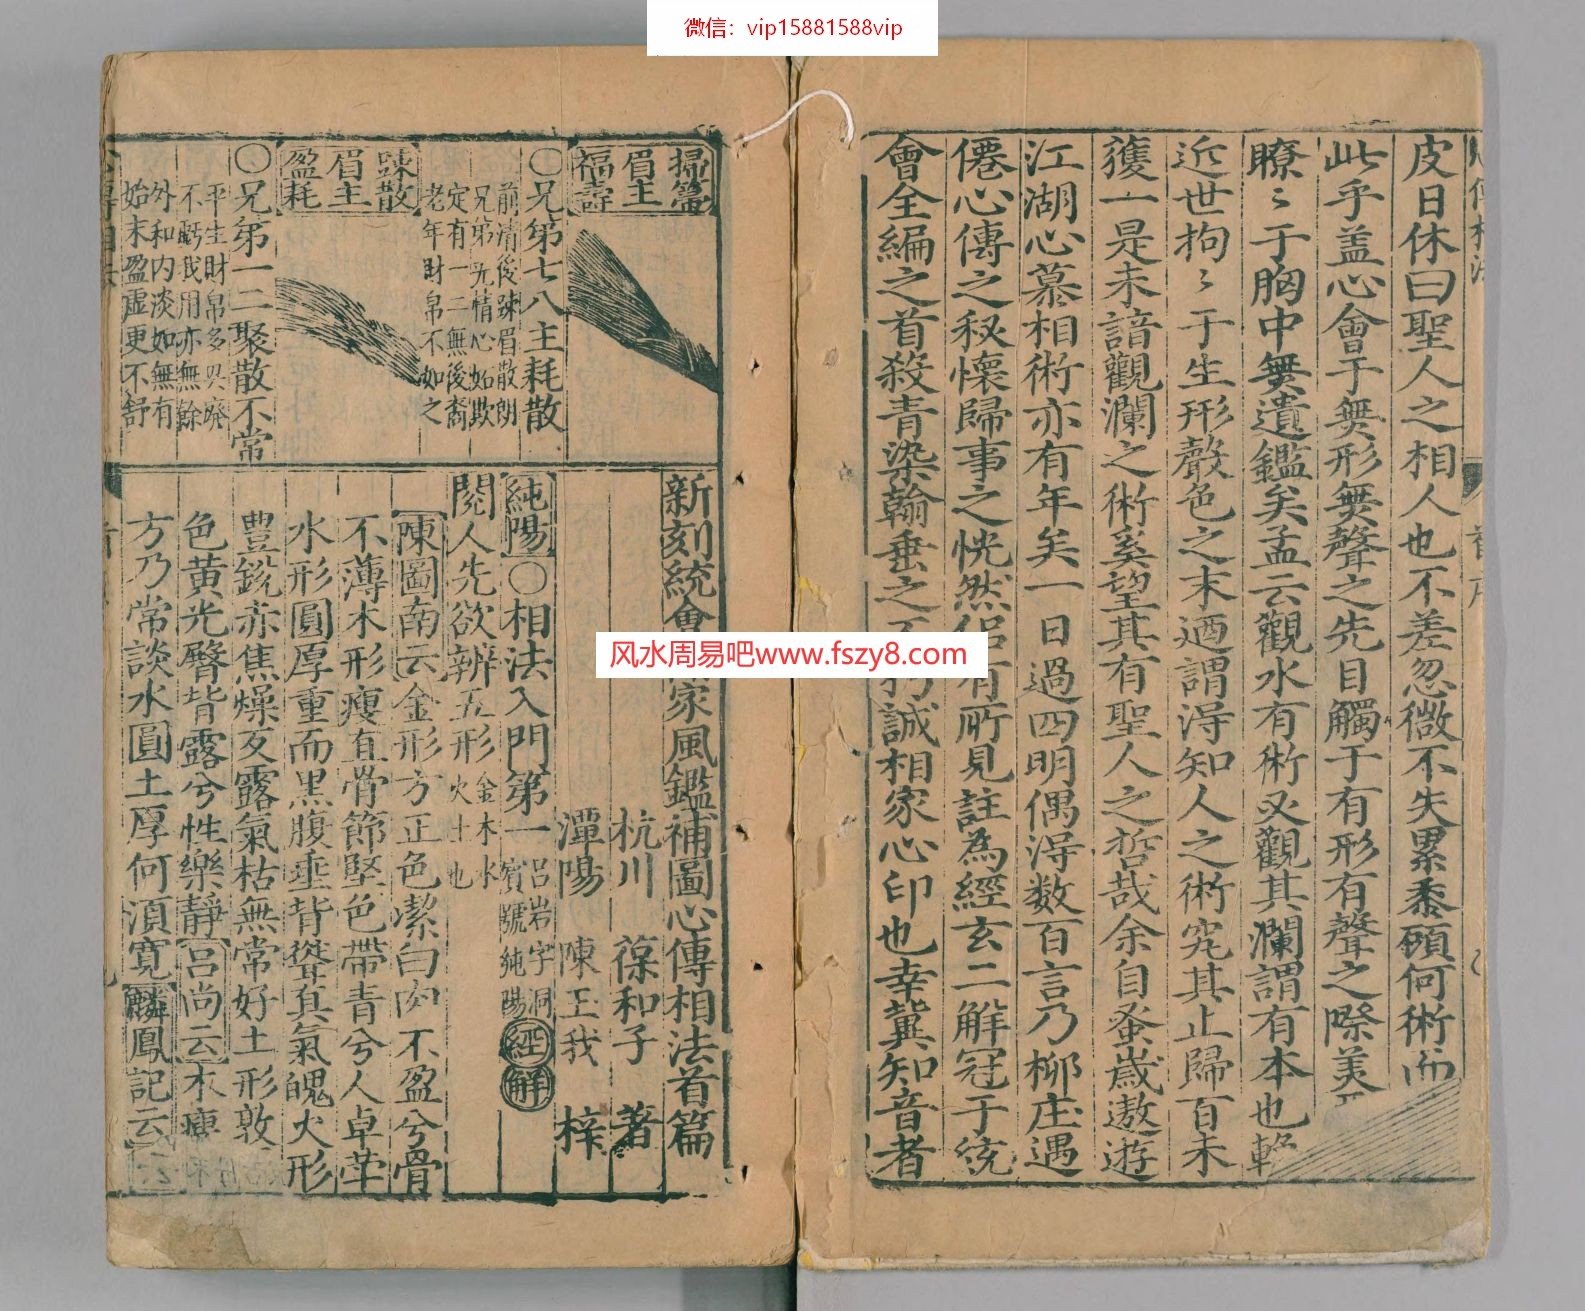 微信：vip15881588vip
皮日休曰聖人之相人也不差忽微不失累黍顧何術而
此乎盖心會于無形無聲之先目觸于有形有聲之際美
瞭〻于胸中無遺鑑矣孟云觀水有術必觀其瀾謂有本也
近世拘〻于生形聲色之末迺謂淂知人之術究其止歸百未
獲一是未諳觀瀾之術奚望其有聖人之哲哉余自蚤歲遨遊
江湖心慕相術亦有年矣一日過四明偶淂数百言乃柳庄遇
僊心傳之秘懷歸事之恍然侶有所見註為經玄二解冠于統
會全編之首殺青染翰垂之不朽誠相家心印也幸冀知音者
風水周易吧www.fszy8.com
掃箒
眉主
福壽
〇兄弟七八主耗散
前清後踈眉散朗
兄弟无情心始欺
定有一二無後裔
老年財帛不如之
踈散
眉主
盈耗
〇兄弟一二聚散不常
平生財帛多興廢
不虧我用亦無餘
外和内淡如無有
始末盈虚更不舒
新刻統會家風鑑補圖心傳相法首篇
杭川 葆和子 著
潭陽 陳玉我 梓
純陽〇相法入門第一 呂岩字洞賓號純陽 經解
閱人先欲辨五形 金木水火土也
陳圖南云金形方正色潔白肉不盈兮骨
不薄木形瘦直骨節堅色帶青兮人卓犖
水形圓厚重而黑腹垂背聳真氣魄火形
豊銳赤焦燥反露氣枯無常好土形敦
色黄光臀背露兮性樂靜呂尚云木瘦
方乃常談水圓土厚何湏寛麟鳳記云